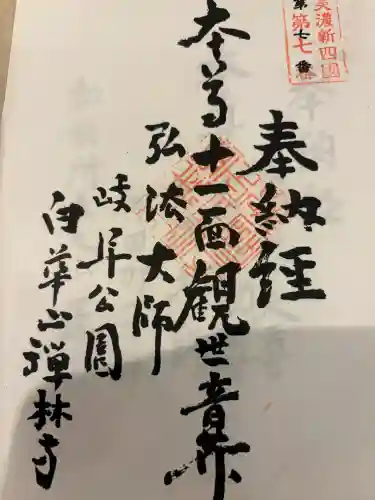 美濃新四國
第七番
奉納経
本尊十一面観世音
弘法大師
岐阜公園
白華山禅林寺